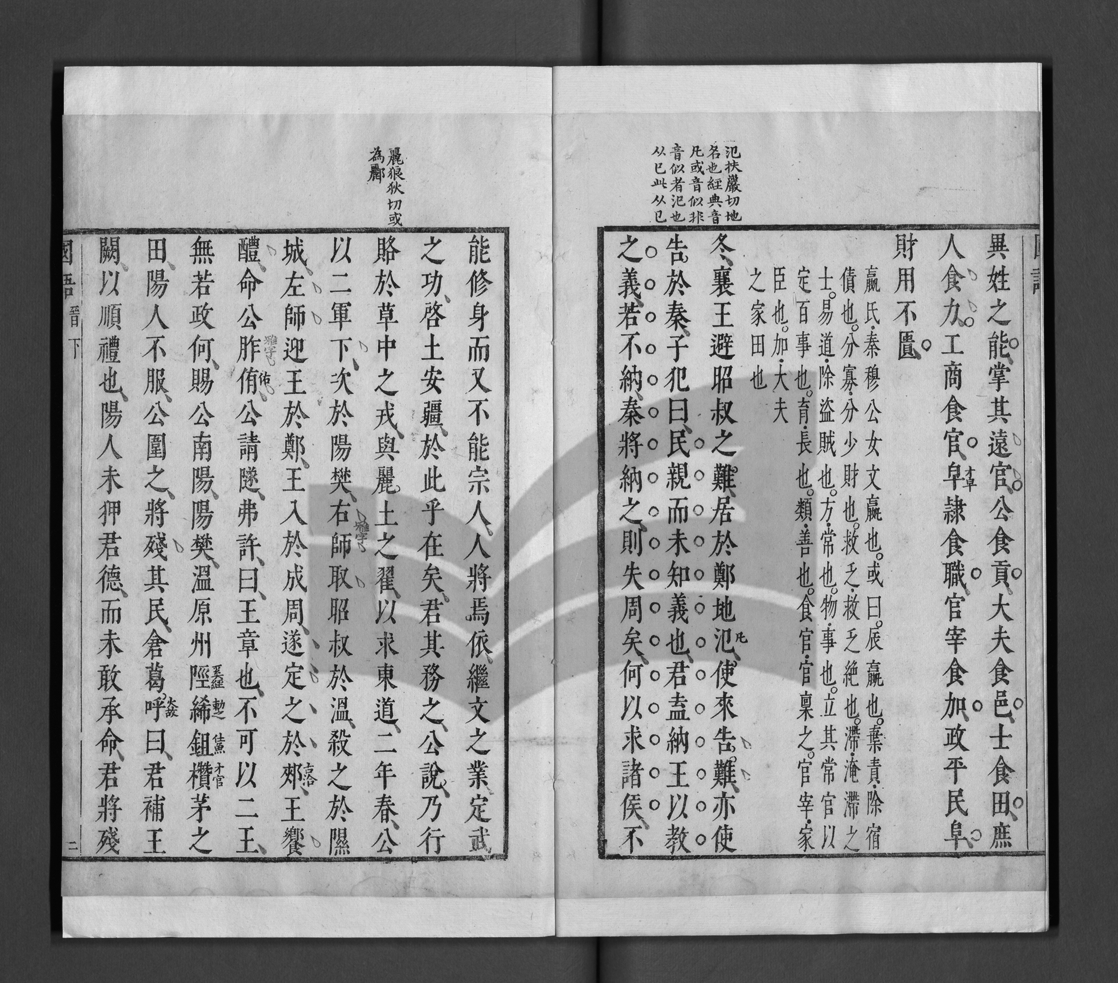 氾扶嚴切地
名也經典音
凡或音似非
音似者汜也
从巳此从㔾
異姓之能掌其遠官公食貢大夫食邑士食田庶
人食力工商食官皁隷食職官宰食加政平民阜
才卓
財用不匱
嬴氏秦穆公女文嬴也或曰辰嬴也棄責除宿
債也分寡分少財也救乏救乏絶也滯淹滯之
士易道除盜賊也方常也物事也立其常官以
定百事也育長也類善也食官官稟之官宰家
臣也加大夫
之家田也
冬襄王避昭叔之難居於鄭地氾使來告難亦使
凡
告於秦子犯曰民親而未知義也君盍納王以教
之義若不納秦將納之則失周矣何以求諸侯不
麗狼狄切或
為酈
能修身而又不能宗人人將焉依繼文之業定武
之功啓土安疆於此乎在矣君其務之公說乃行
賂於草中之戎與麗土之翟以求東道二年春公
以二軍下次於陽樊右師取昭叔於溫殺之於隰
城左師迎王於鄭王入於成周遂定之於郟王饗
醴命公胙侑公請隧弗許曰王章也不可以二王
佑
無若政何賜公南陽陽樊溫原州陘絺鉏欑茅之
田陽人不服公圍之將殘其民倉葛呼曰君補王
闕以順禮也陽人未狎君德而未敢承命君將殘
國語 晉下 二